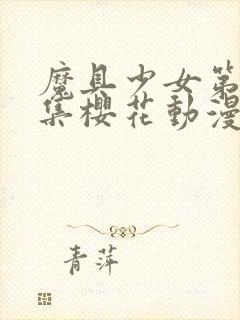 魔具少女第
集櫻花動漫
青萍